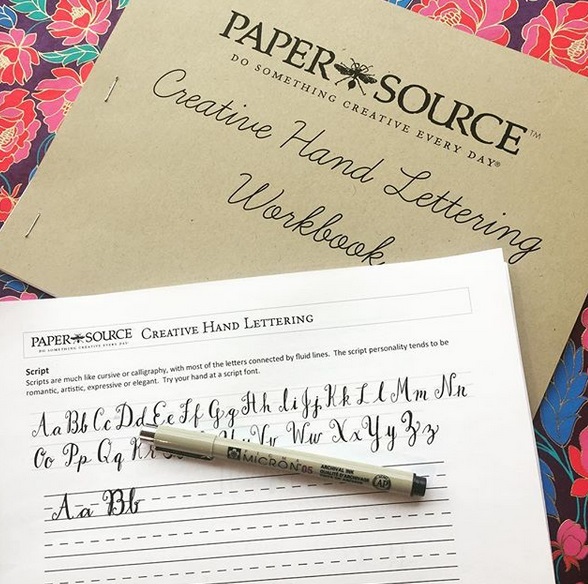 PAPER SOURCE™
DO SOMETHING CREATIVE EVERY DAY®
Creative Hand Lettering
Workbook
PAPER SOURCE CREATIVE HAND LETTERING
DO SOMETHING CREATIVE EVERY DAY
Script
Scripts are much like cursive or calligraphy, with most of the letters connected by fluid lines. The script personality tends to be
romantic, artistic, expressive or elegant. Try your hand at a script font.
Aa Bb Cc Dd Ee Ff Gg Hh Ii Jj Kk Ll Mm Nn
Oo Pp Qq Vv Ww Xx Yy Zz
MICRON 05 ARCHIVAL INK
QUALITÉ D'ARCHIVAGE
AP
Aa Bb